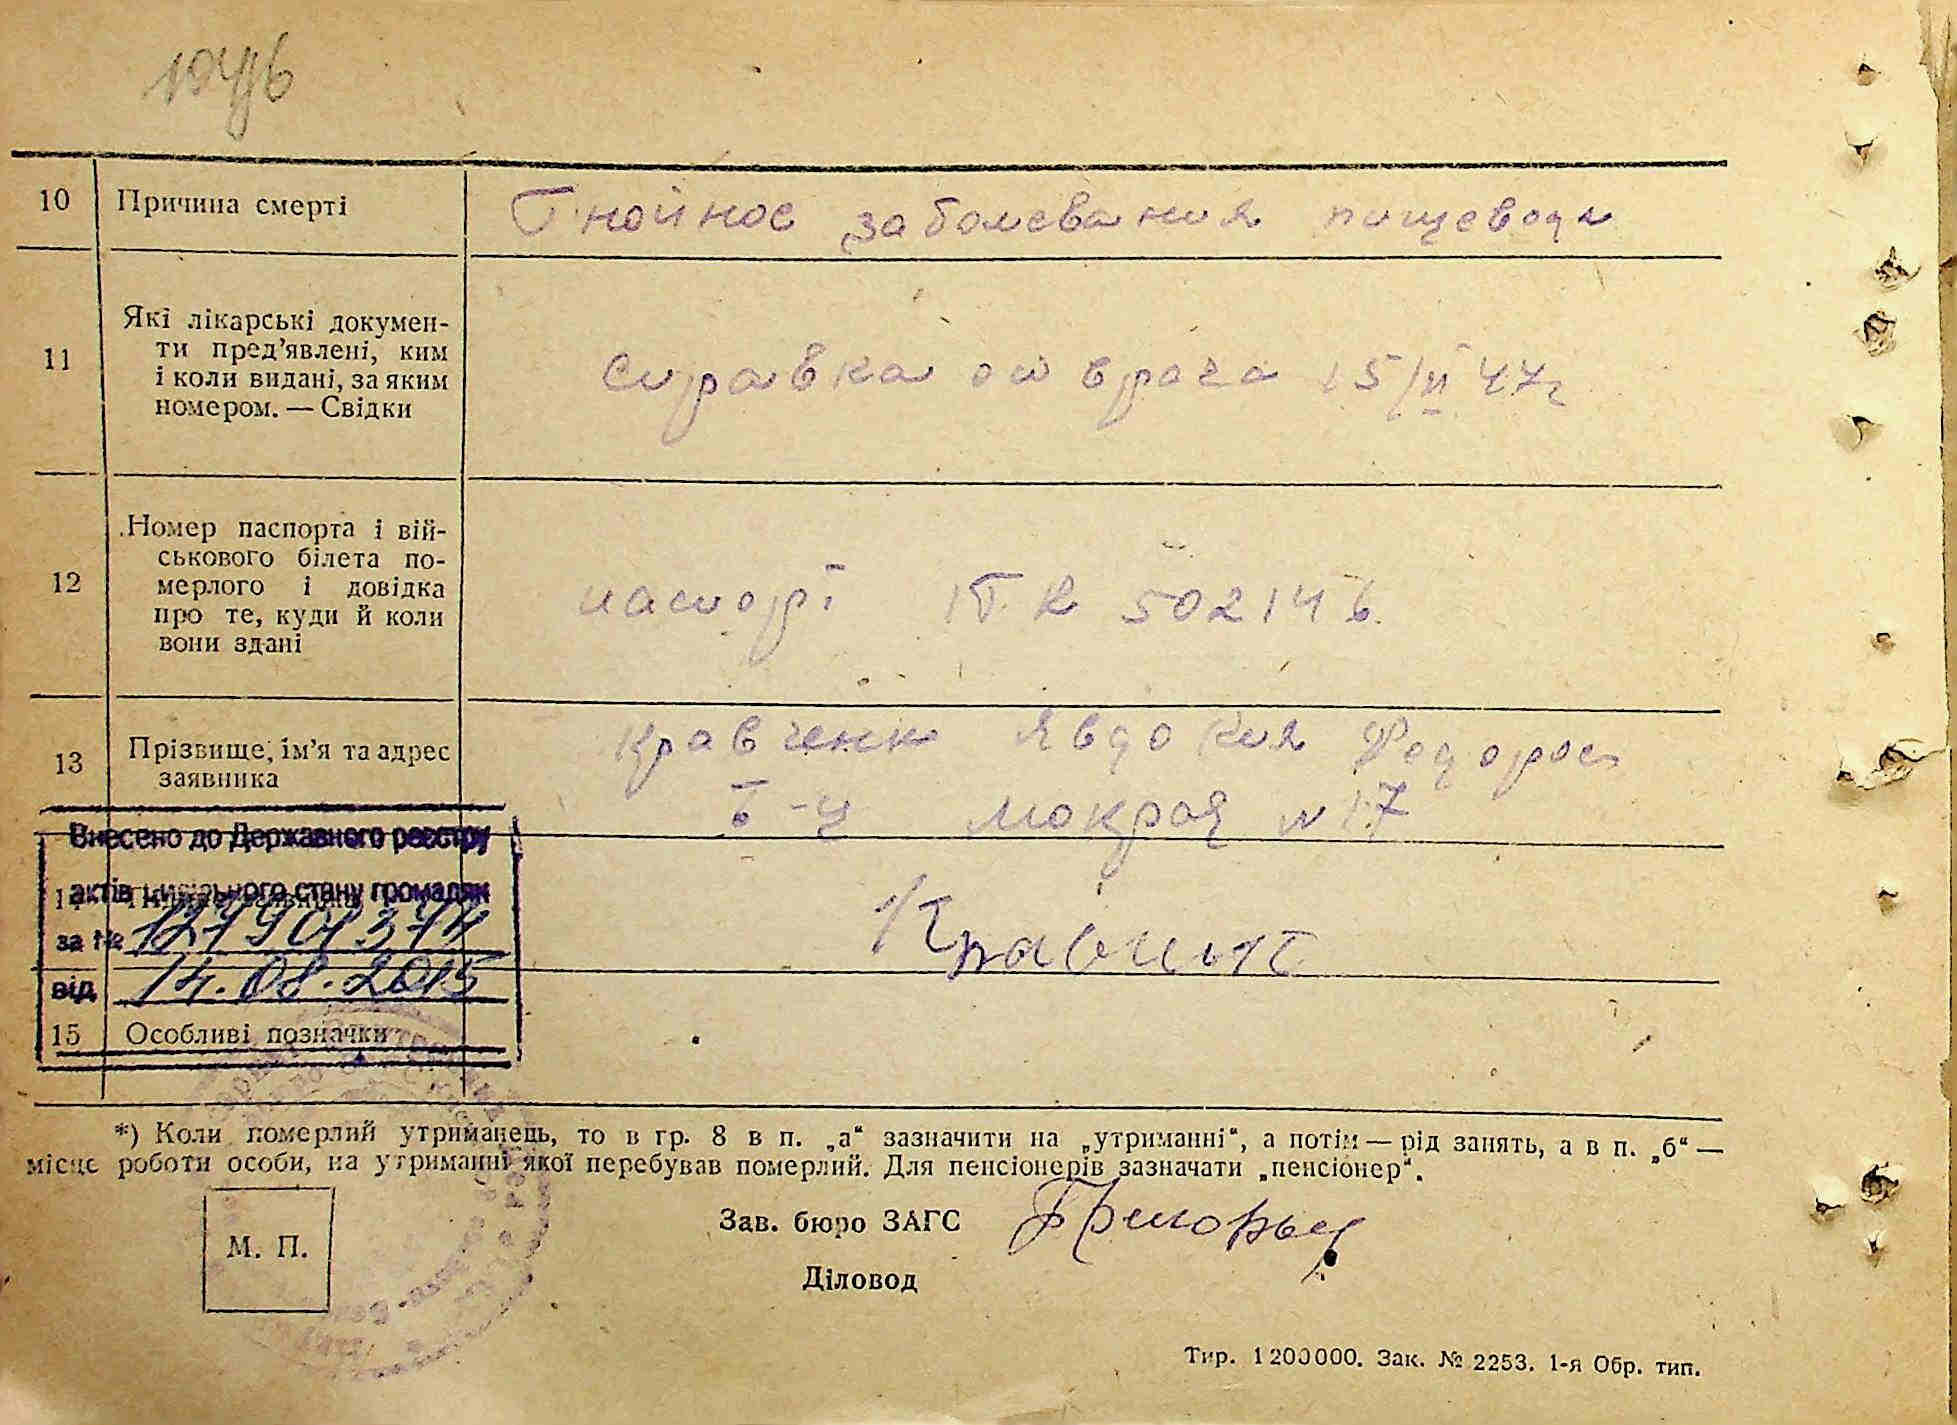 10
Причина смерті
Гнойное заболевания пищевода
11
Які лікарські докумен-
ти пред’явлені, ким
і коли видані, за яким
номером. — Свідки
Справка от врача 15/VI 47г
12
Номер паспорта і вій-
ськового білета по-
мерлого і довідка
про те, куди й коли
вони здані
паспорт 502146
13
Прізвище, ім’я та адрес
заявника
Кравченк Явдокия Федоров
Б-Ц Мокрая N 17
Внесено до Державного реєстру
актів цивільного стану громадян
14
за №
від 14.08.2015
15
Особливі позначки
*) Коли померлий утриманець, то в гр. 8 в п. „а“ зазначити на „утриманні“, а потім — рід занять, а в п. „б“ —
місце роботи особи, на утриманні якої перебував померлий. Для пенсіонерів зазначати „пенсіонер“.
М. П.
Зав. бюро ЗАГС
Діловод
Тир. 1200000. Зак. № 2253. 1-я Обр. тип.